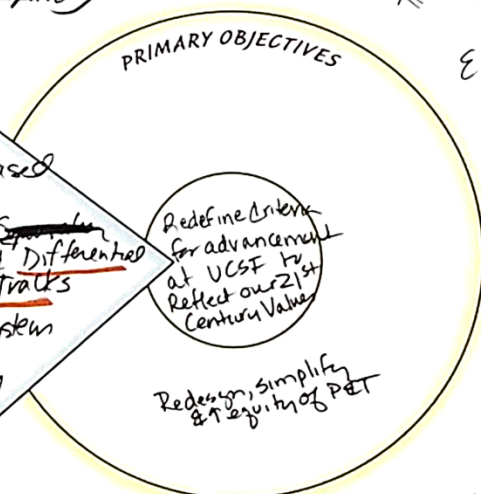 PRIMARY OBJECTIVES
Differential
Tracks
Redefine Criteria
for advancement
at UCSF to
Reflect our 21st
Century Values
Redesign, simplify
& ↑ equity of P&T